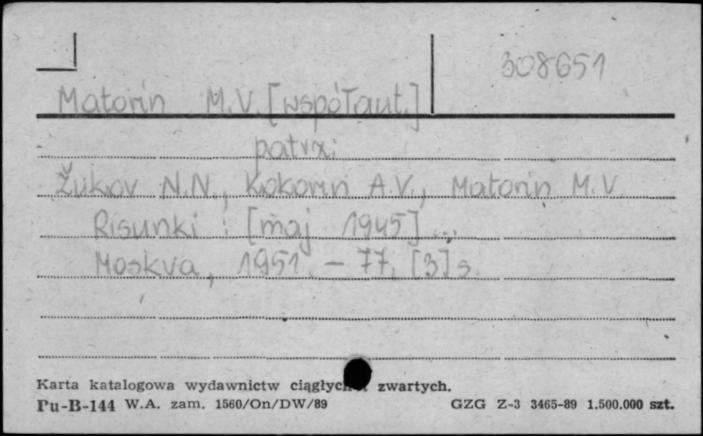 308651
Matorin M.V. [współaut.]
patrz:
Žukov N.N., Kokorin A.V., Matorin M.V.
Risunki : [maj 1945] ...
Moskva, 1951. – 77, [3] s.
Karta katalogowa wydawnictw ciągłych zwartych.
Pu-B-144 W.A. zam. 1560/On/DW/89 GZG Z-3 3465-89 1.500.000 szt.